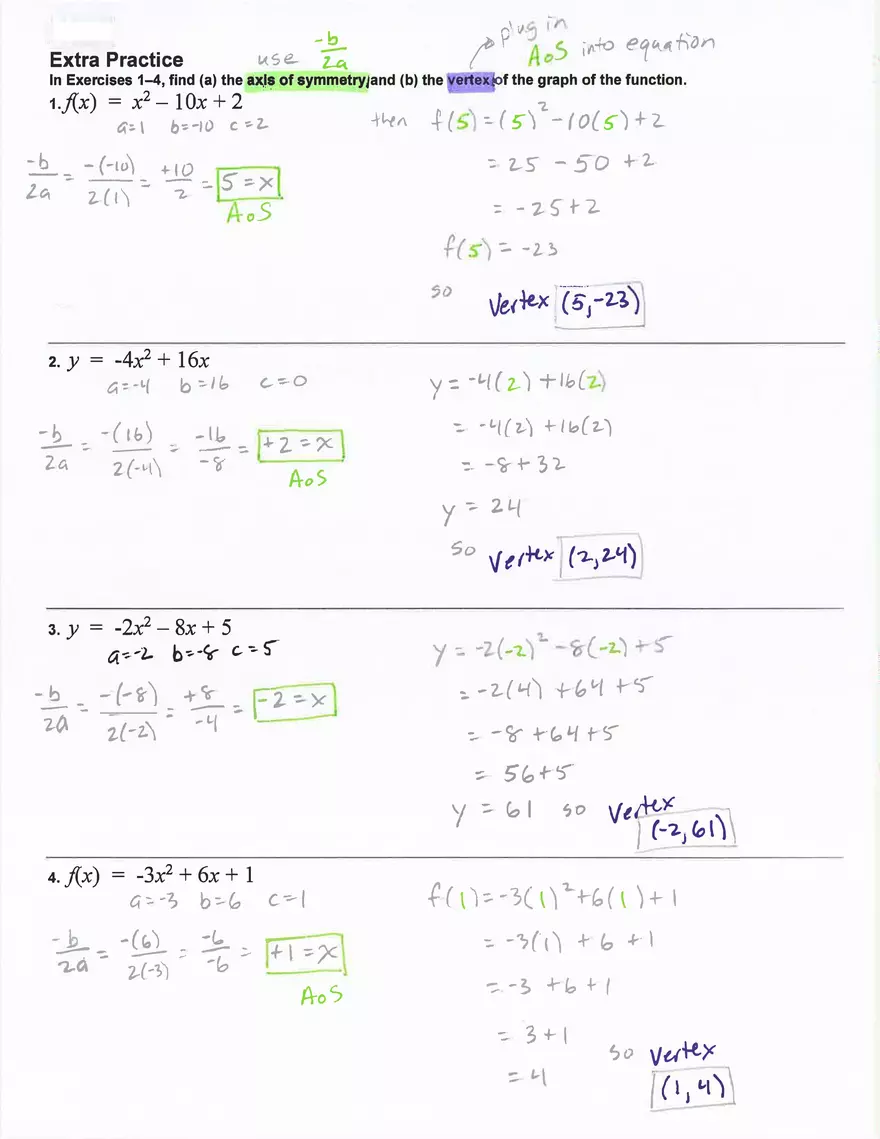 use -b/2a
plug in
AoS into equation
Extra Practice
In Exercises 1–4, find (a) the axis of symmetry, and (b) the vertex of the graph of the function.
1. f(x) = x² – 10x + 2
a=1 b=-10 c=2
-b/2a = -(-10)/2(1) = +10/2 = 5 = x
AoS
then f(5) = (5)² - 10(5) + 2
= 25 - 50 + 2
= -25 + 2
f(5) = -23
so Vertex (5,-23)
2. y = -4x² + 16x
a=-4 b=16 c=0
-b/2a = -(16)/2(-4) = -16/-8 = +2 = x
AoS
y = -4(2) + 16(2)
= -4(2) + 16(2)
= -8 + 32
y = 24
so Vertex (2,24)
3. y = -2x² – 8x + 5
a=-2 b=-8 c=5
-b/2a = -(-8)/2(-2) = +8/-4 = -2 = x
y = -2(-2)² - 8(-2) + 5
= -2(4) + 64 + 5
= -8 + 64 + 5
= 56 + 5
y = 61 so Vertex
(-2,61)
4. f(x) = -3x² + 6x + 1
a=-3 b=6 c=1
-b/2a = -(6)/2(-3) = -6/-6 = +1 = x
AoS
f(1) = -3(1)² + 6(1) + 1
= -3(1) + 6 + 1
= -3 + 6 + 1
= 3 + 1
= 4
so Vertex
(1,4)